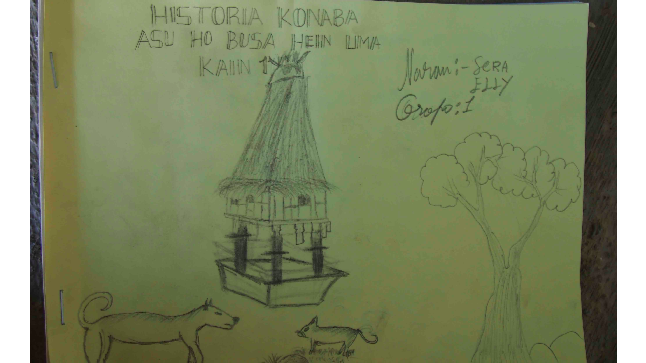 HISTORIA KONABA
ASU HO BUSA HEIN UMA
KAIN 1
Naran:- SERA
ELLY
Grupo: 1